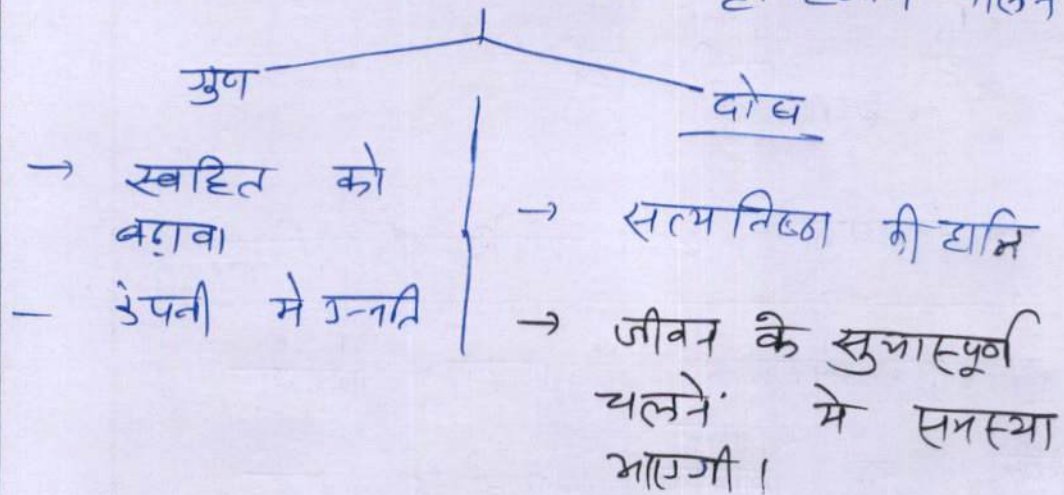 गुण
दोष
→ स्वहित को
बढ़ावा
- कंपनी मे उन्नति
→ सत्यनिष्ठा की हानि
→ जीवन के सुचारूपूर्ण
चलने में समस्या
आएगी।